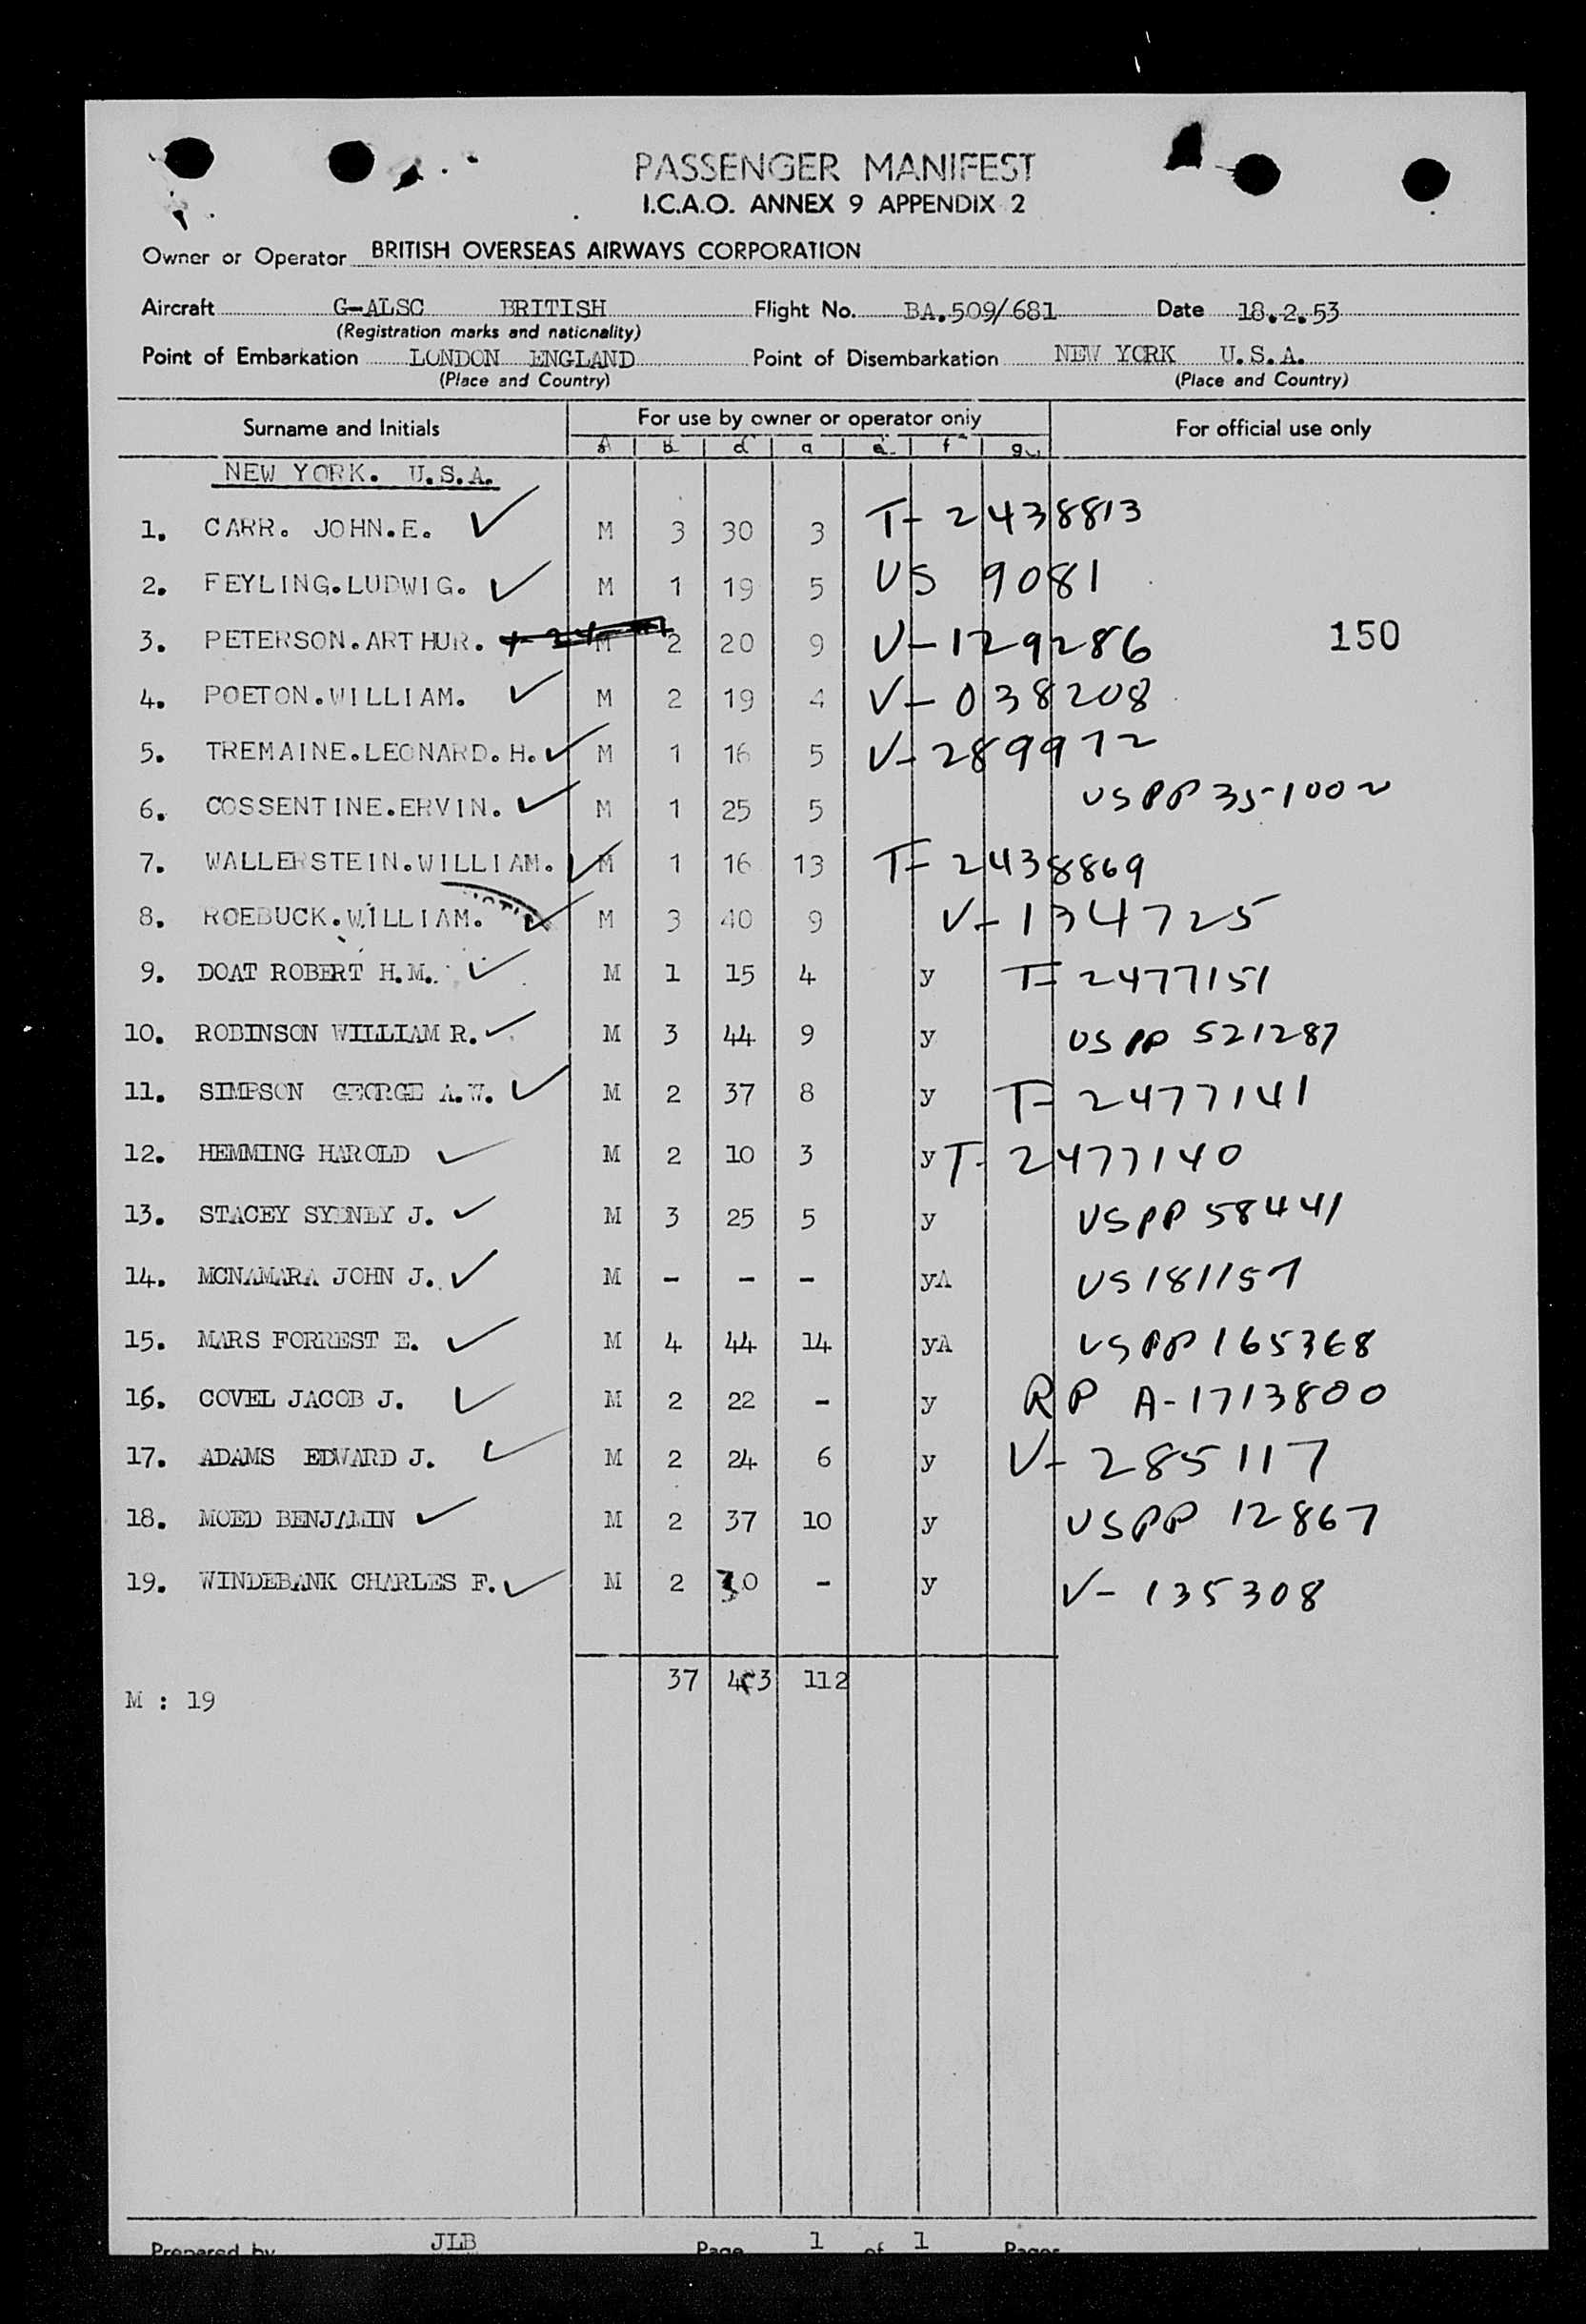 PASSENGER MANIFEST
I.C.A.O. ANNEX 9 APPENDIX 2
Owner or Operator BRITISH OVERSEAS AIRWAYS CORPORATION
Aircraft G-ALSC BRITISH Flight No. BA.509/681 Date 18.2.53
(Registration marks and nationality)
Point of Embarkation LONDON ENGLAND Point of Disembarkation NEW YORK U.S.A.
(Place and Country) (Place and Country)
Surname and Initials For use by owner or operator only For official use only
b d a f g
NEW YORK. U.S.A.
1. CARR. JOHN.E. M 3 30 3 T-2438813
2. FEYLING.LUDWIG. M 1 19 5 US 9081
3. PETERSON.ARTHUR. M 2 20 9 V-129286 150
4. POETON.WILLIAM. M 2 19 4 V-038208
5. TREMAINE.LEONARD.H. M 1 16 5 V-289972
6. COSSENTINE.ERVIN. M 1 25 5 USPP
7. WALLERSTEIN.WILLIAM. M 1 16 13 T-2438869
8. ROEBUCK.WILLIAM. M 3 40 9 V-134725
9. DOAT ROBERT H.M. M 1 15 4 y T-2477151
10. ROBINSON WILLIAM R. M 3 44 9 y USPP 521287
11. SIMPSON GEORGE A.W. M 2 37 8 y T-2477141
12. HEMMING HAROLD M 2 10 3 y T-2477140
13. STACEY SYDNEY J. M 3 25 5 y USPP 58441
14. MCNAMARA JOHN J. M - - - yA US 181157
15. MARS FORREST E. M 4 44 14 yA USPP 165368
16. COVEL JACOB J. M 2 22 - y RP A-1713800
17. ADAMS EDWARD J. M 2 24 6 y V-285117
18. MOED BENJAMIN M 2 37 10 y USPP 12867
19. WINDEBANK CHARLES F. M 2 30 - y V-135308
37 112
M : 19
Prepared by JLB Page 1 of 1 Pages